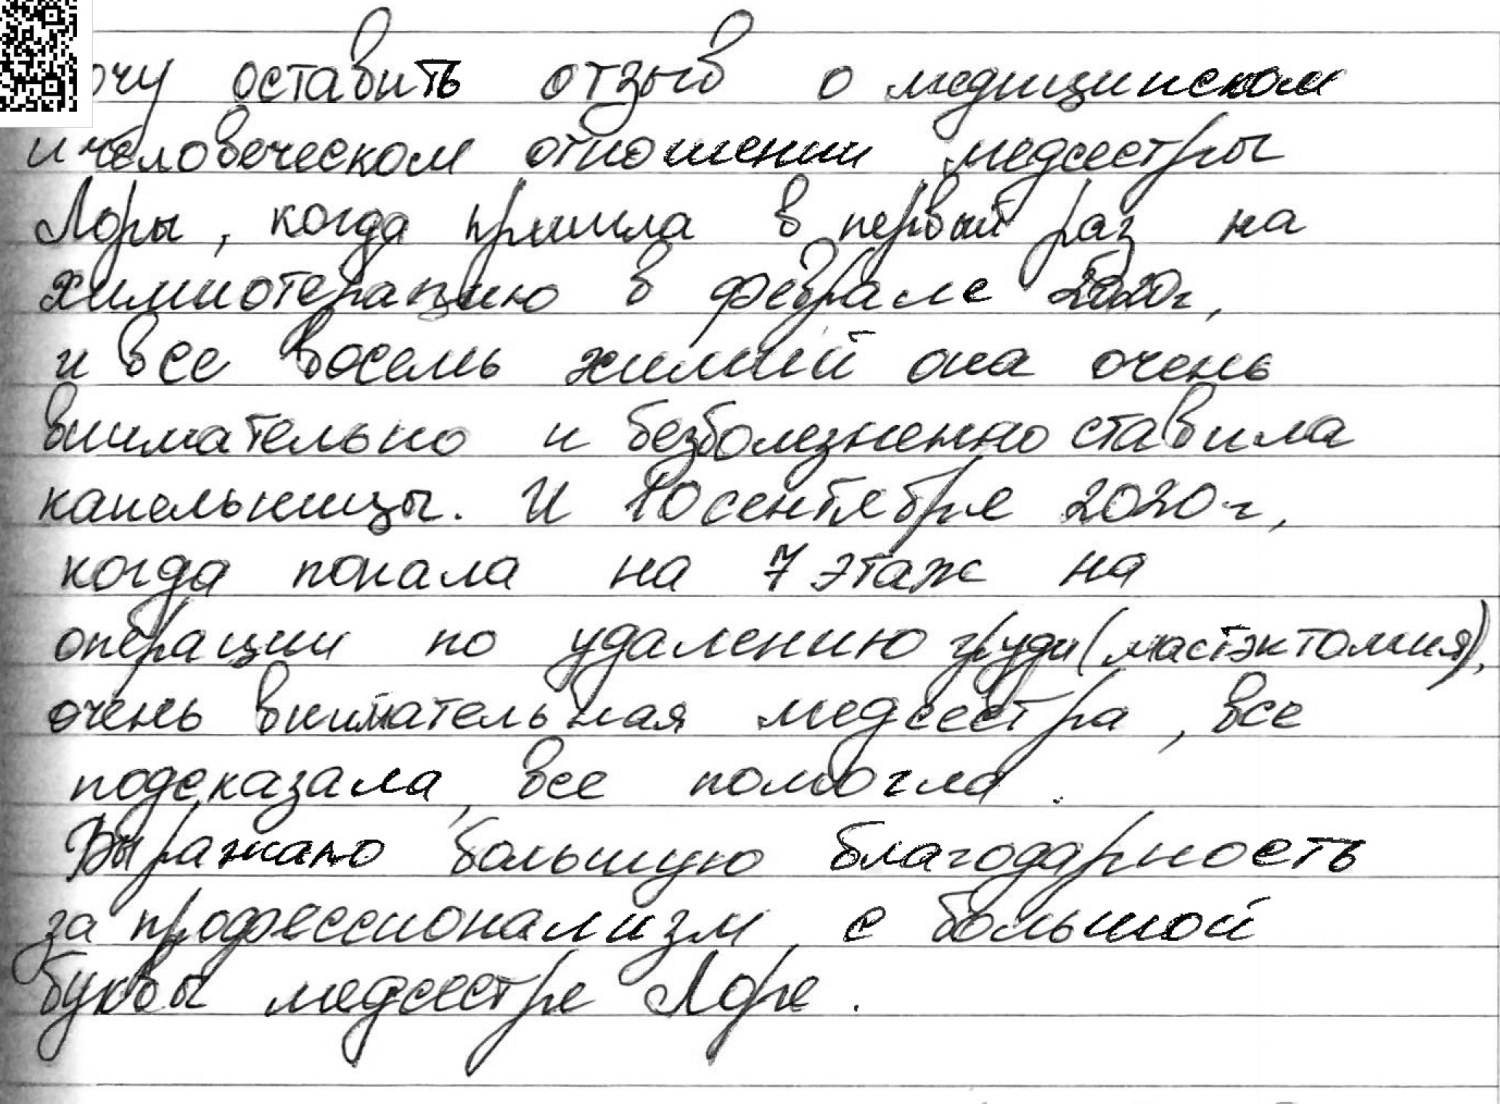 очу оставить отзыв о медицинском
и человеческом отношении медсестры
Лоры, когда пришла в первый раз на
химиотерапию в феврале 2020г,
и все восемь химий она очень
внимательно и безболезненно ставила
капельницы. И 10 сентября 2020г,
когда попала на 7 этаж на
операции по удалению груди (мастэктомия),
очень внимательная медсестра, все
подсказала, все помогла.
Выражаю большую благодарность
за профессионализм с большой
буквы медсестре Лоре.